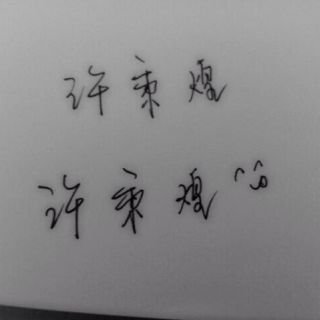 许秉煜
许秉煜